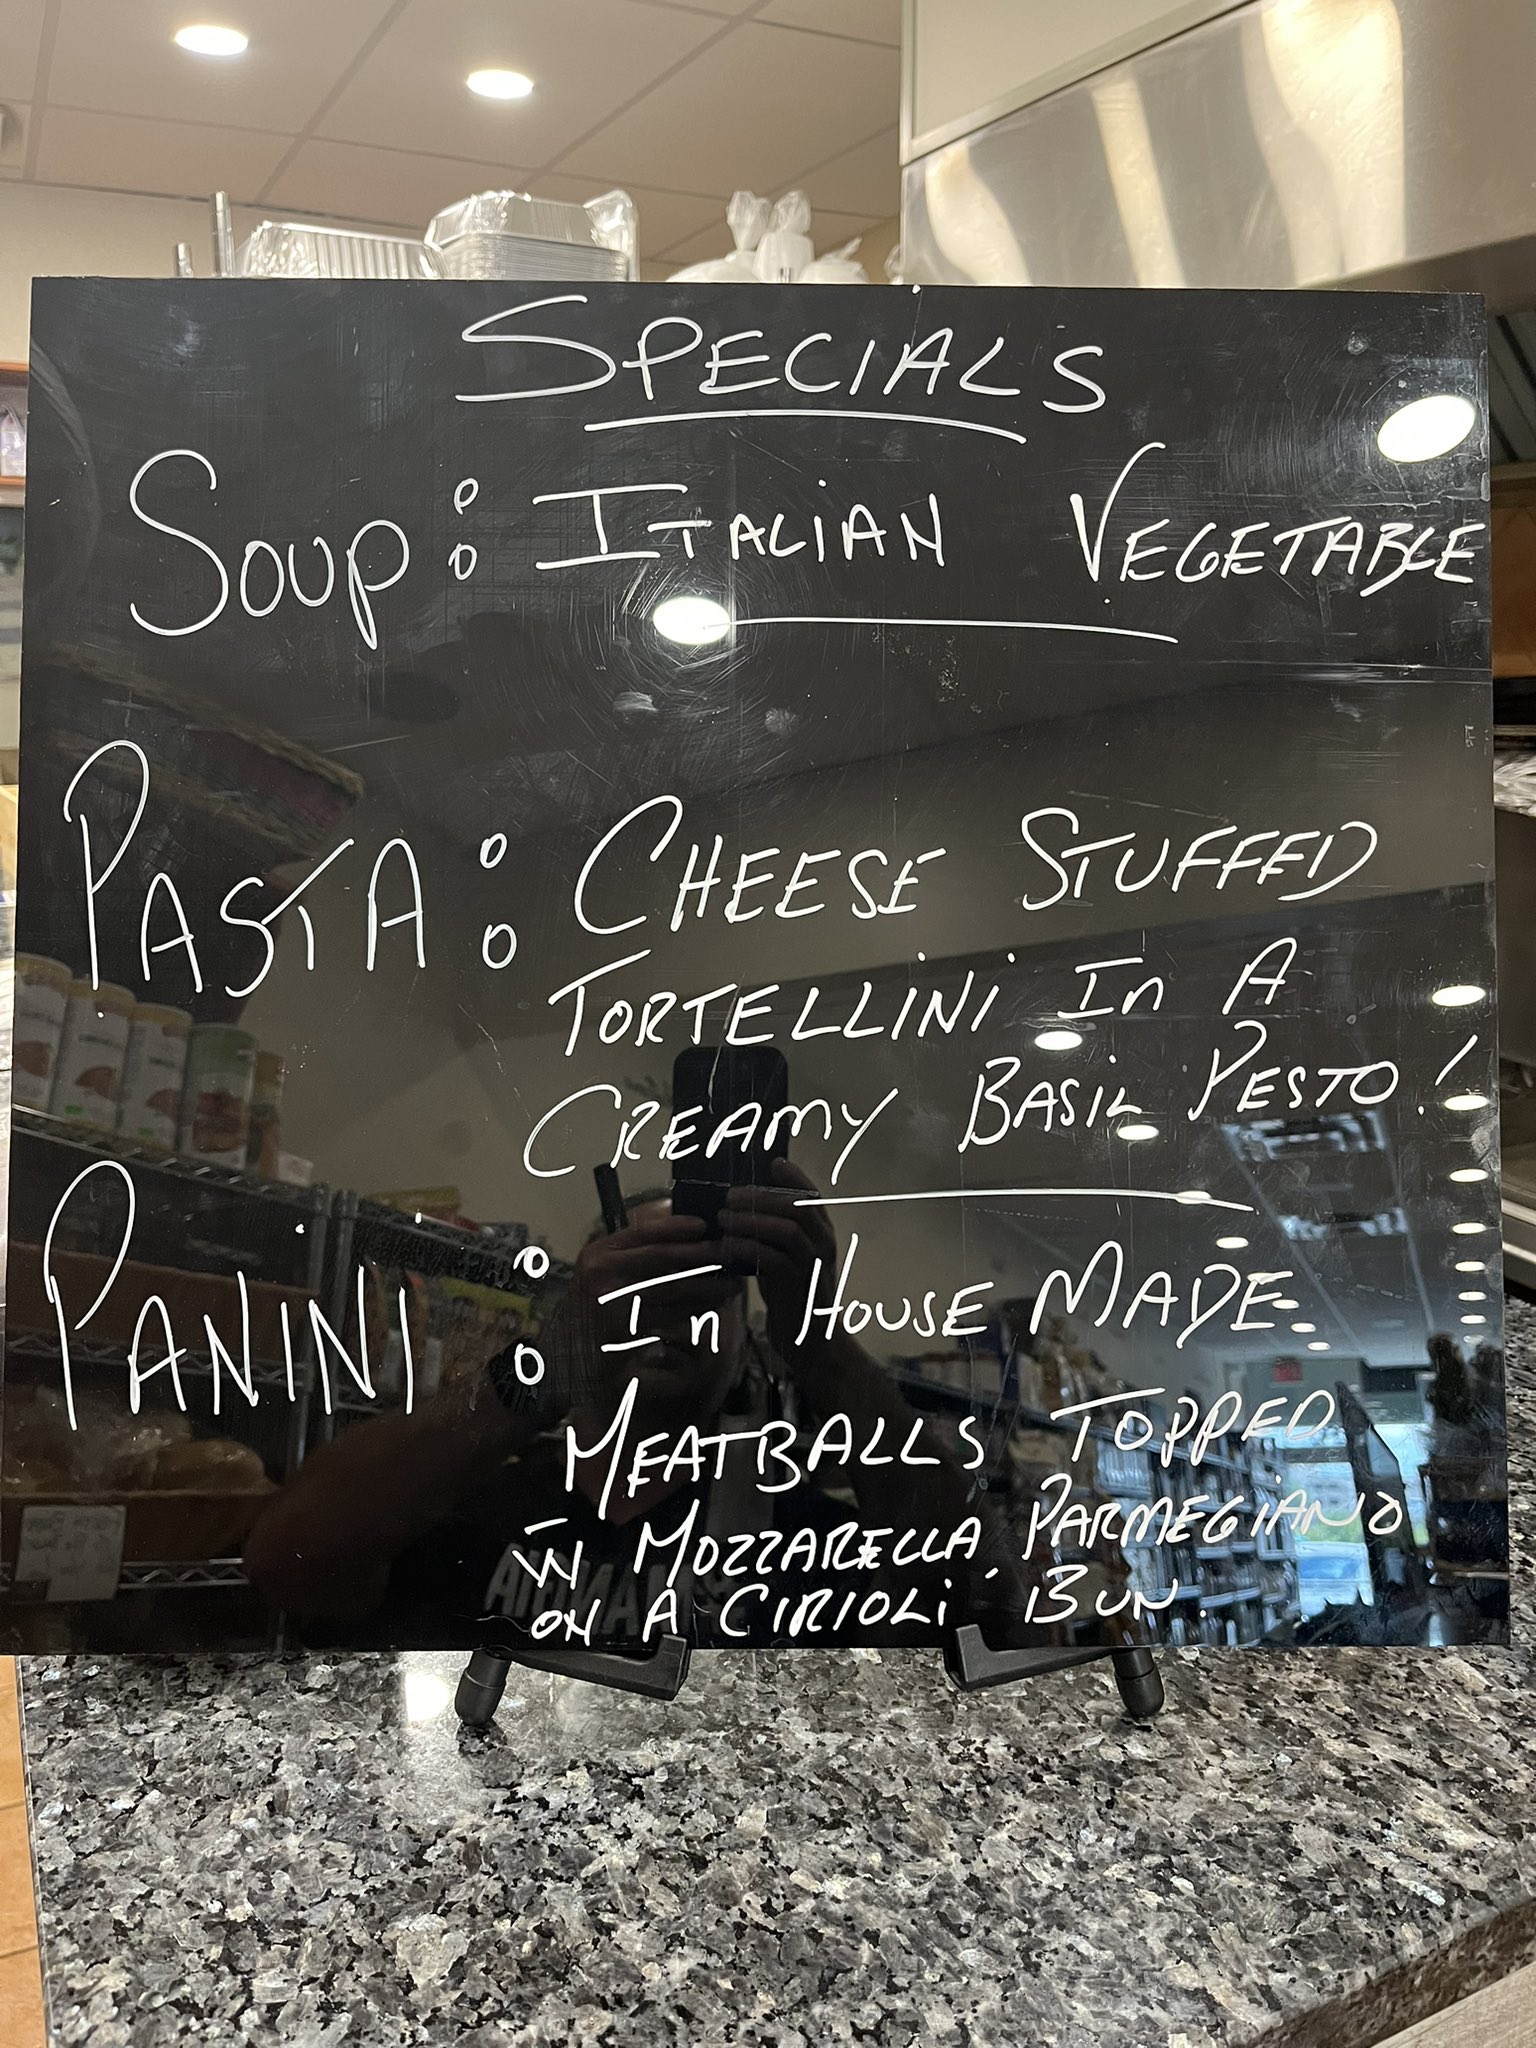 SPECIALS
SOUP: ITALIAN VEGETABLE
PASTA: CHEESE STUFFED
TORTELLINI In A
CREAMY BASIL PESTO!
PANINI: In HOUSE MADE
MEATBALLS TOPPED
W MOZZARELLA PARMEGIANO
ON A CIRIOLI BUN.